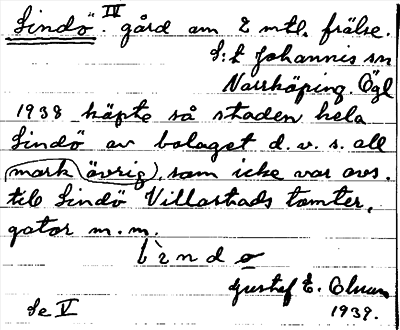 Lindö. IV gård om 2 mtl. frälse.
S:t Johannis sn
Norrköping. Ögl
1938 köpte så staden hela
Lindö av bolaget d.v.s. all
mark (övrig), som icke var avs.
till Lindö Villastads tomter,
gator m.m.
lìndo
Gustaf E. Olsson
Se V 1939.